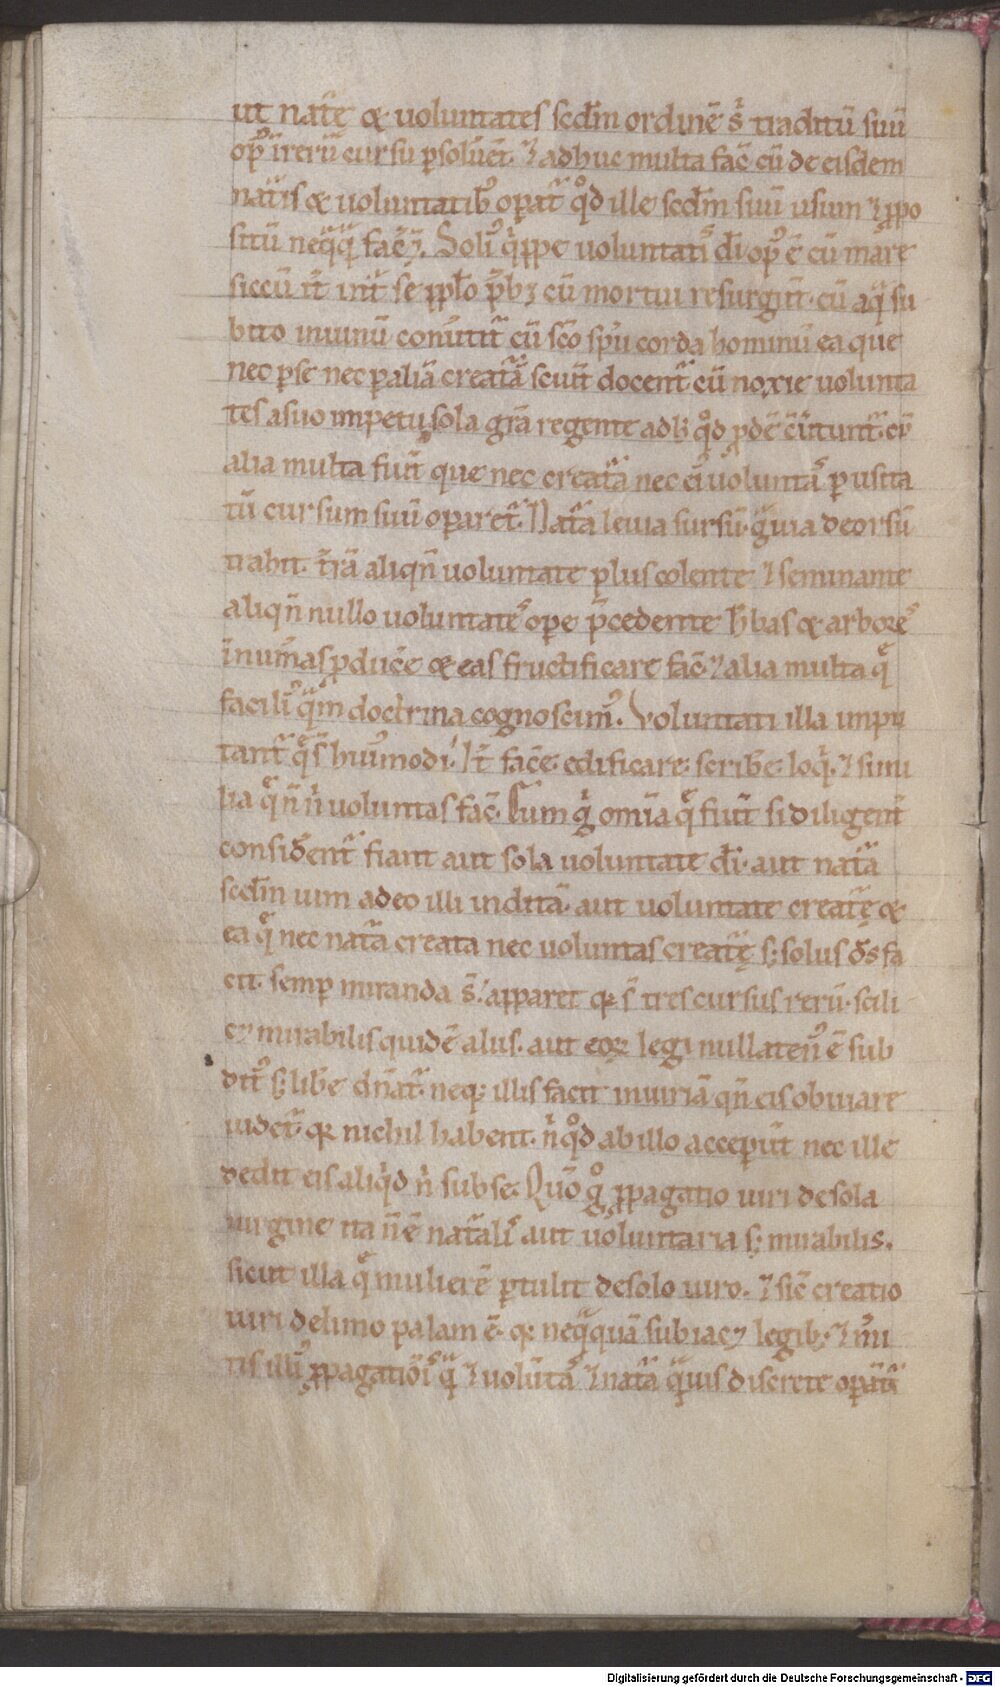 ut nat̄ę & uoluntates scđm ordinē s͛ traditū suū
op᷒ i rerū cursu psoluēt. ⁊ adhuc multa fac̄ cū de eisdem
nat̄is & uoluntatib᷒ opat᷑ qd̊ ille scđm suū usum ⁊ ppo
sitū neq̄q̄ᷓ fac̄et. Solı᷒ q̍ppe uoluntati᷒ dı̄ op᷒ ē cū mare
siccū it̄ int̄ se ppło p̄bꝫ cū mortui resurgūt. cū aqᷓ su
bito inuinū conu̓tit᷑ cū sc̄o sp̄u corda hominū ea que
nec pse nec paliā creat̄ā sciūt docent᷑ cū noxie uolunta
tes asuo impetu sola gr̄a regente adiđ qd̊ pdē c̄u̓tunt᷑. et
alia multa fiūt que nec creat̄a nec ei᷒ uolunta᷒ p usita
tū cursum suū oparet᷑. Nat̄a leuia sursū. gᷓuia deorsū
trahit. t̄rā aliqn̄ uoluntate plus colente ⁊ seminante
aliqn̄ nullo uoluntate᷒ ope p̄cedente h̄bas & arbore᷒
īnum̄as pduce̅ & eas fructificare fac̄. ⁊ alia multa q̨̄
facili᷒ qᷓm doctrina cognoscim᷒. Voluntati illa impu
tant᷑ q̨̄ s̄ hui᷒modi. It̄ facē. edificare. scribe̅. loq̍. ⁊ simi
lia q̨̄ n̄ n̍ uoluntas fac̄. Cum g̍ omīa q̨̄ fiūt si diligent̄
consid̄ent᷑ fiant aut sola uoluntate dı̄. aut nat̄a
scđm uim adeo illi inditā. aut uoluntate creat̄ę &
ea q̨̄ nec nat̄a creata nec uoluntas creat̄ę sꝫ solus d̄s fa
cit. semp miranda s̄. apparet qꝫ s̄ tres cursus rerū. scili
cꝫ mirabilis quidē alius. aut eoꝝ legi nullaten᷒ ē sub
dit᷒ sꝫ libe̅ dn̄at᷑. neqꝫ illis facit iniuriā qn̄ eis obuiare
uidet᷑. qꝫ nichil habent. n̍ qd̊ ab illo accepūt nec ille
dedit eis aliq̍d n̍ sub se. Quō g̊ ppagatio uiri de sola
uirgine ita n̄ ē nat̄ali᷒ aut uoluntaria sꝫ mirabilis.
sicut illa q̨̄ mulierē ptulit de solo uiro. ⁊ sic̄ creatio
uiri de limo palam ē. qꝫ neqᷓquā subiacꝫ legibꝫ. ⁊ m̓i
tis illı᷒ ppagatiōi᷒ qᷓ ⁊ uolūta᷒ ⁊ nat̄a qᷓuis discrete opāt᷑
Digitalisierung gefördert durch die Deutsche Forschungsgemeinschaft - DFG